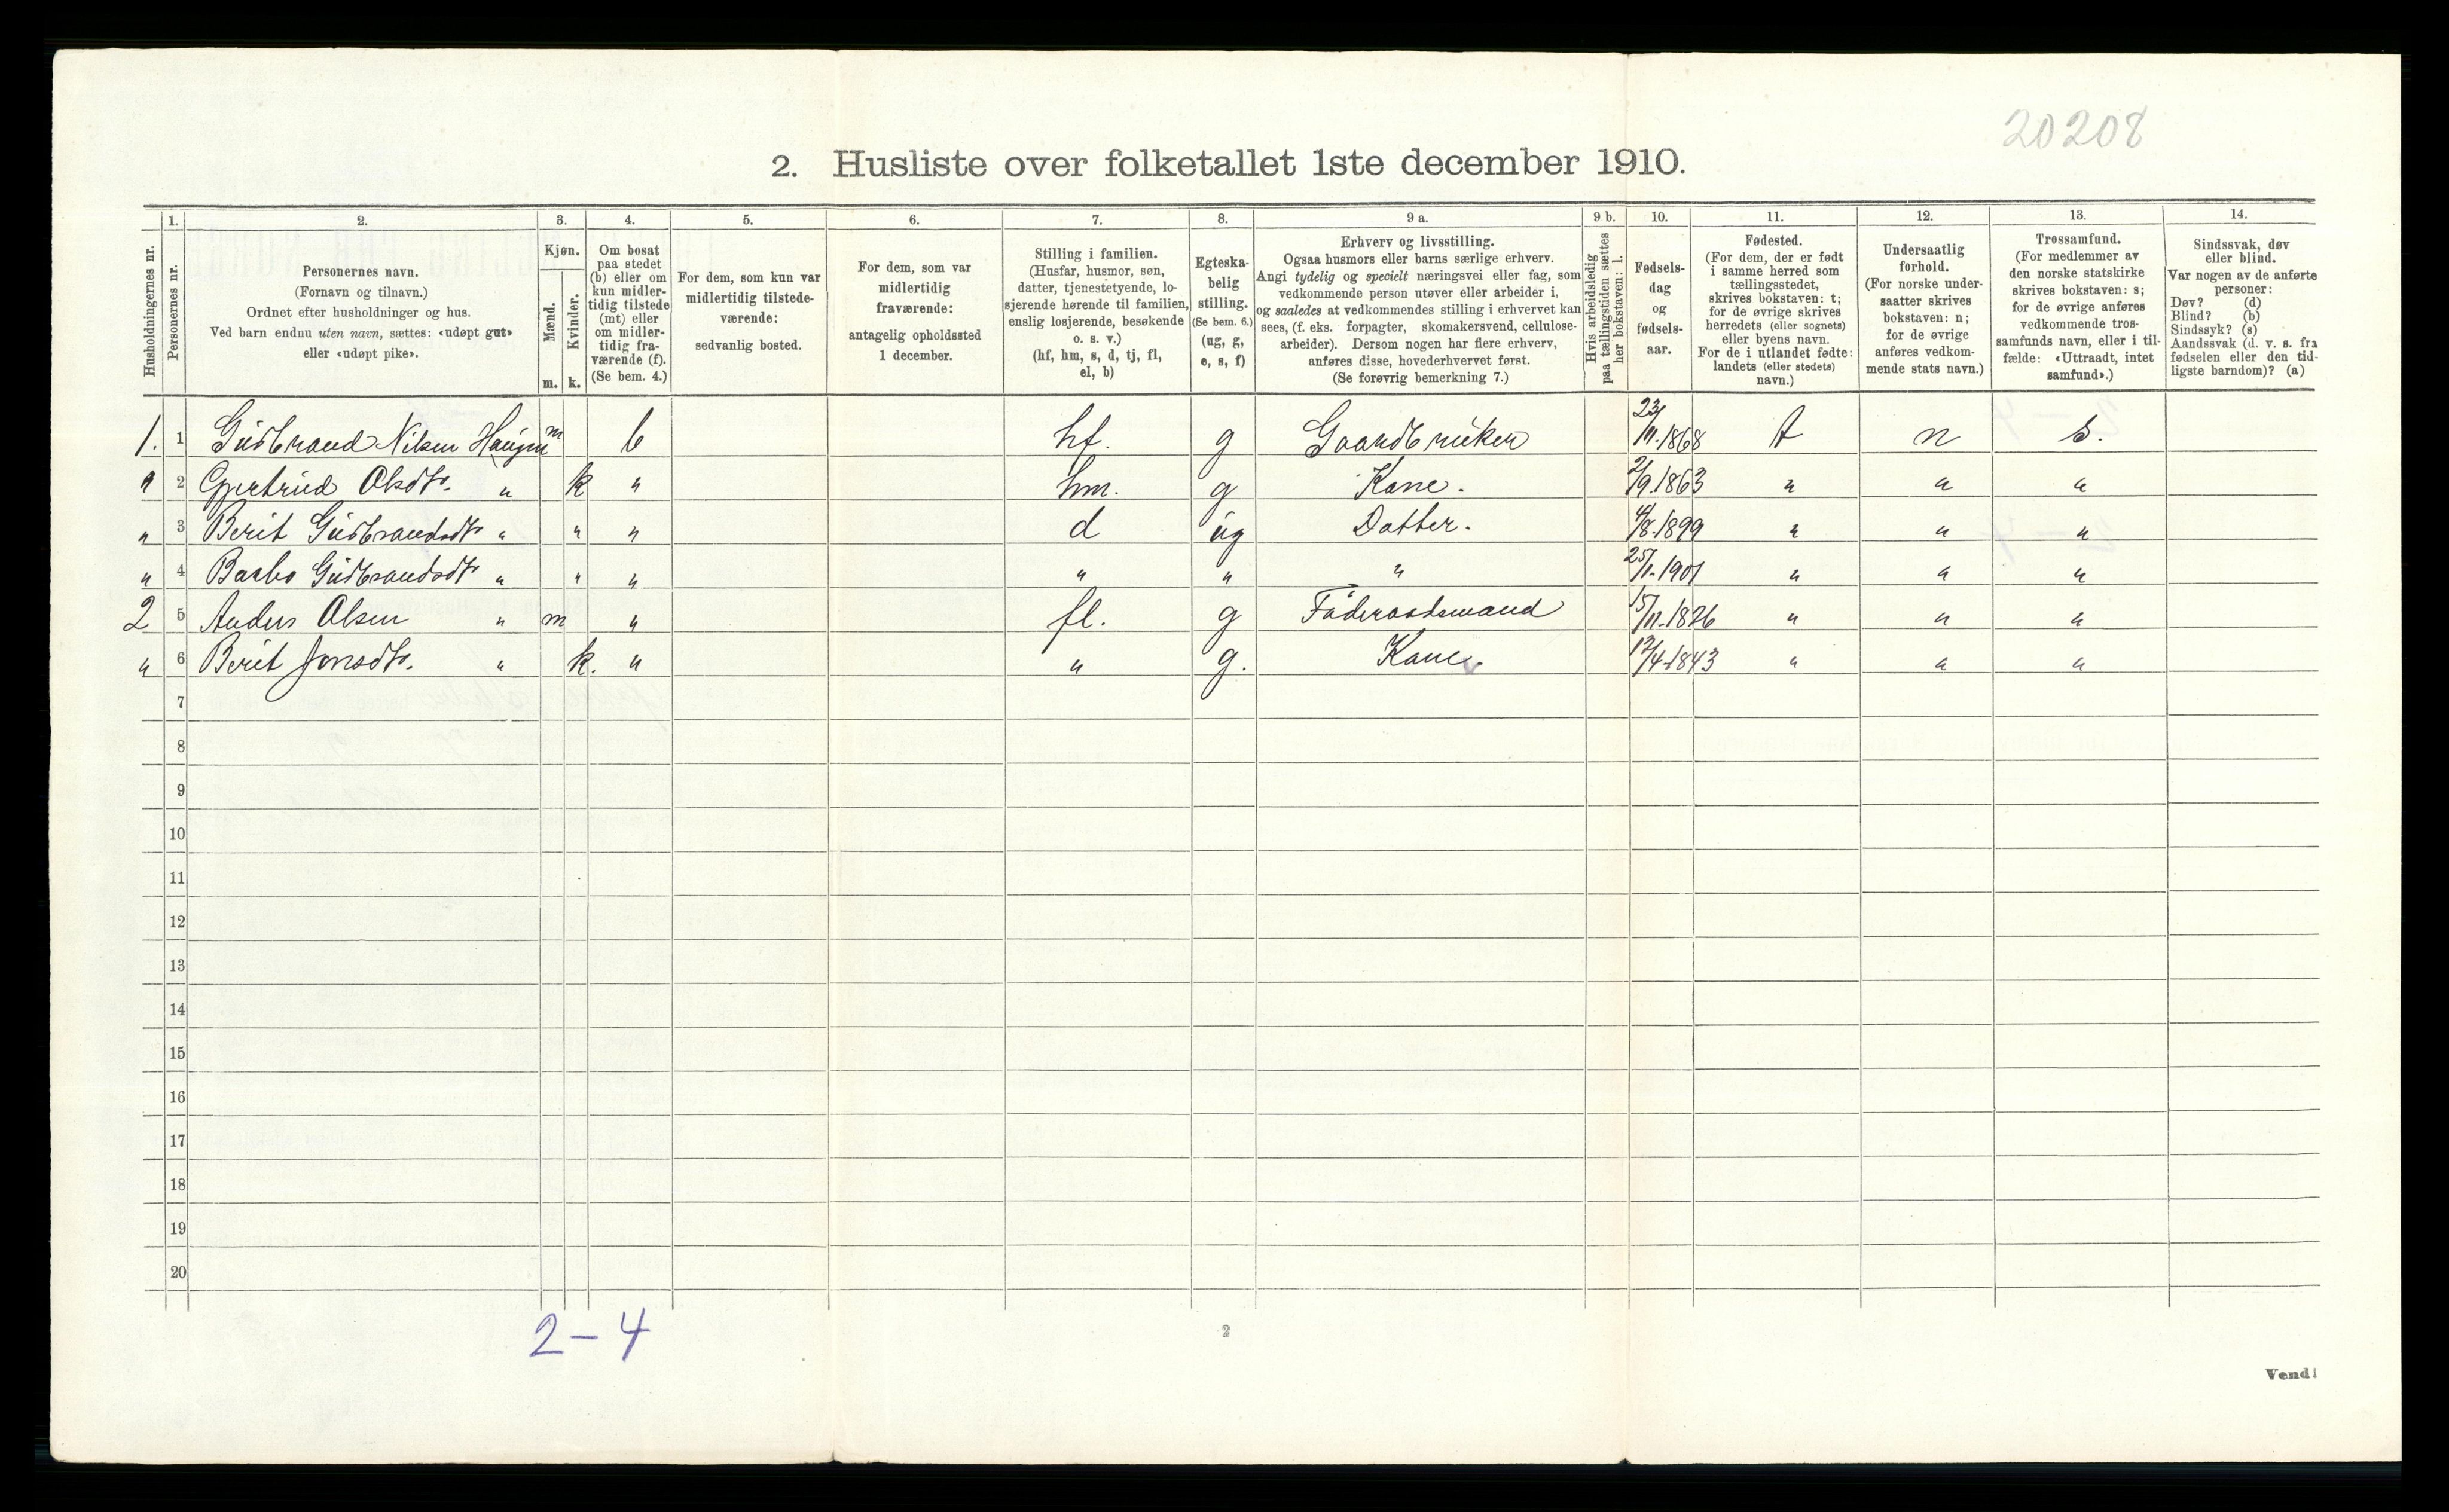 20208
2. Husliste over folketallet 1ste december 1910.
Husholdningernes nr.
1.
Personernes nr.
2.
Personernes navn.
(Fornavn og tilnavn.)
Ordnet efter husholdninger og hus.
Ved barn endnu uten navn, sættes: «udøpt gut»
eller «udøpt pike».
3.
Kjøn.
Mænd.
m.
Kvinder.
k.
4.
Om bosat
paa stedet
(b) eller om
kun midler-
tidig tilstede
(mt) eller
om midler-
tidig fra-
værende (f).
(Se bem. 4.)
5.
For dem, som kun var
midlertidig tilstede-
værende:
sedvanlig bosted.
6.
For dem, som var
midlertidig
fraværende:
antagelig opholdssted
1 december.
7.
Stilling i familien.
(Husfar, husmor, søn,
datter, tjenestetyende, lo-
sjerende hørende til familien,
enslig losjerende, besøkende
o. s. v.)
(hf, hm, s, d, tj, fl,
el, b)
8.
Egteska-
belig
stilling.
(Se bem. 6.)
(ug, g,
e, s, f)
9 a.
Erhverv og livsstilling.
Ogsaa husmors eller barns særlige erhverv.
Angi tydelig og specielt næringsvei eller fag, som
vedkommende person utøver eller arbeider i,
og saaledes at vedkommendes stilling i erhvervet kan
sees, (f. eks. forpagter, skomakersvend, cellulose-
arbeider). Dersom nogen har flere erhverv,
anføres disse, hovederhvervet først.
(Se forøvrig bemerkning 7.)
9 b.
Hvis arbeidsledig
paa tællingstiden sættes
her bokstaven: l.
10.
Fødsels-
dag
og
fødsels-
aar.
11.
Fødested.
(For dem, der er født
i samme herred som
tællingsstedet,
skrives bokstaven: t;
for de øvrige skrives
herredets (eller sognets)
eller byens navn.
For de i utlandet fødte:
landets (eller stedets)
navn.)
12.
Undersaatlig
forhold.
(For norske under-
saatter skrives
bokstaven: n;
for de øvrige
anføres vedkom-
mende stats navn.)
13.
Trossamfund.
(For medlemmer av
den norske statskirke
skrives bokstaven: s;
for de øvrige anføres
vedkommende tros-
samfunds navn, eller i til-
fælde: «Uttraadt, intet
samfund».)
14.
Sindssvak, døv
eller blind.
Var nogen av de anførte
personer:
Døv? (d)
Blind? (b)
Sindssyk? (s)
Aandssvak (d. v. s. fra
fødselen eller den tid-
ligste barndom)? (a)
1. 1 Gudbrand Nilsen Haugen m b hf. g Gaardbruker 23/11.1868 t n s.
" 2 Gjertrud Olsdtr. " k " hm. g Kone. 2/9.1863 " " "
" 3 Berit Gudbrandsdtr " " " d ug Datter. 4/8.1899 " " "
" 4 Barbo Gudbrandsdtr " " " " " " 25/1.1901 " " "
2 5 Anders Olsen " m " fl. g Föderaadsmand 15/11.1826 " " "
" 6 Berit Jonsdtr. " k. " " g. Kone. 12/4.1843 " " "
7
8
9
10
11
12
13
14
15
16
17
18
19
20
2 – 4
2
Vend!